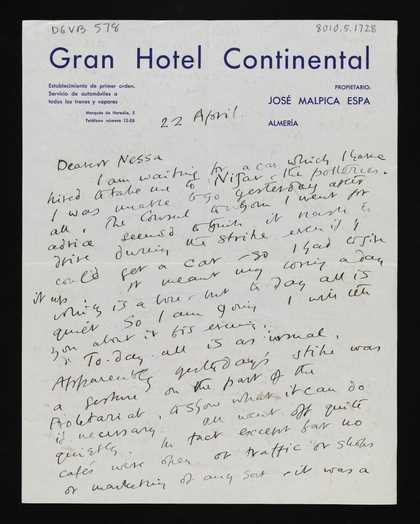 DGVB 578
8010.5.1728
Gran Hotel Continental
Establecimiento de primer orden.
Servicio de automóviles a
todos los trenes y vapores
Marqués de Heredia, 5
PROPIETARIO:
JOSÉ MALPICA ESPA
ALMERÍA
22 April
Dearest Nessa
I am waiting for a car which I have
hired to take me to Nijar & the potteries.
I was unable to go yesterday after
all. The Consul to whom I went for
advice seemed to think it rash to
drive during the strike even if I
could get a car – so I had to give
it up. It meant my losing a day
which is a bore – but to day all is
quiet so I am going. I will tell
you about it this evening.
To-day all is as usual.
Apparently yesterday's strike was
a gesture on the part of the
Proletariat, to show what it can do
if necessary. All went off quite
quietly. In fact except that no
cafés were open or traffic or shops
or marketing of any sort – it was a